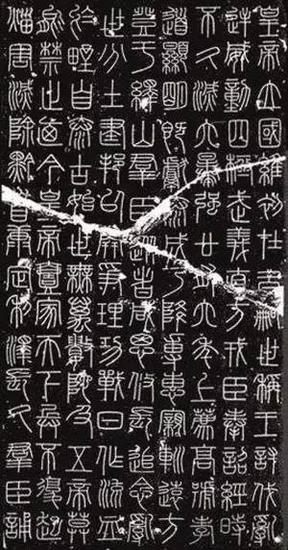 皇帝立國維初在昔嗣世稱王討伐亂
逆威動四極武義直方戎臣奉詔經時
不久滅六暴強廿有六年上薦高號孝
道顯明既獻泰成乃降專惠親巡遠方
登于繹山羣臣從者咸思攸長追念亂
世分土建邦以開爭理功戰日作流血
於野自泰古始世無萬數陀及五帝莫
能禁止乃今皇帝壹家天下兵不復起
災害滅除黔首康定利澤長久羣臣誦